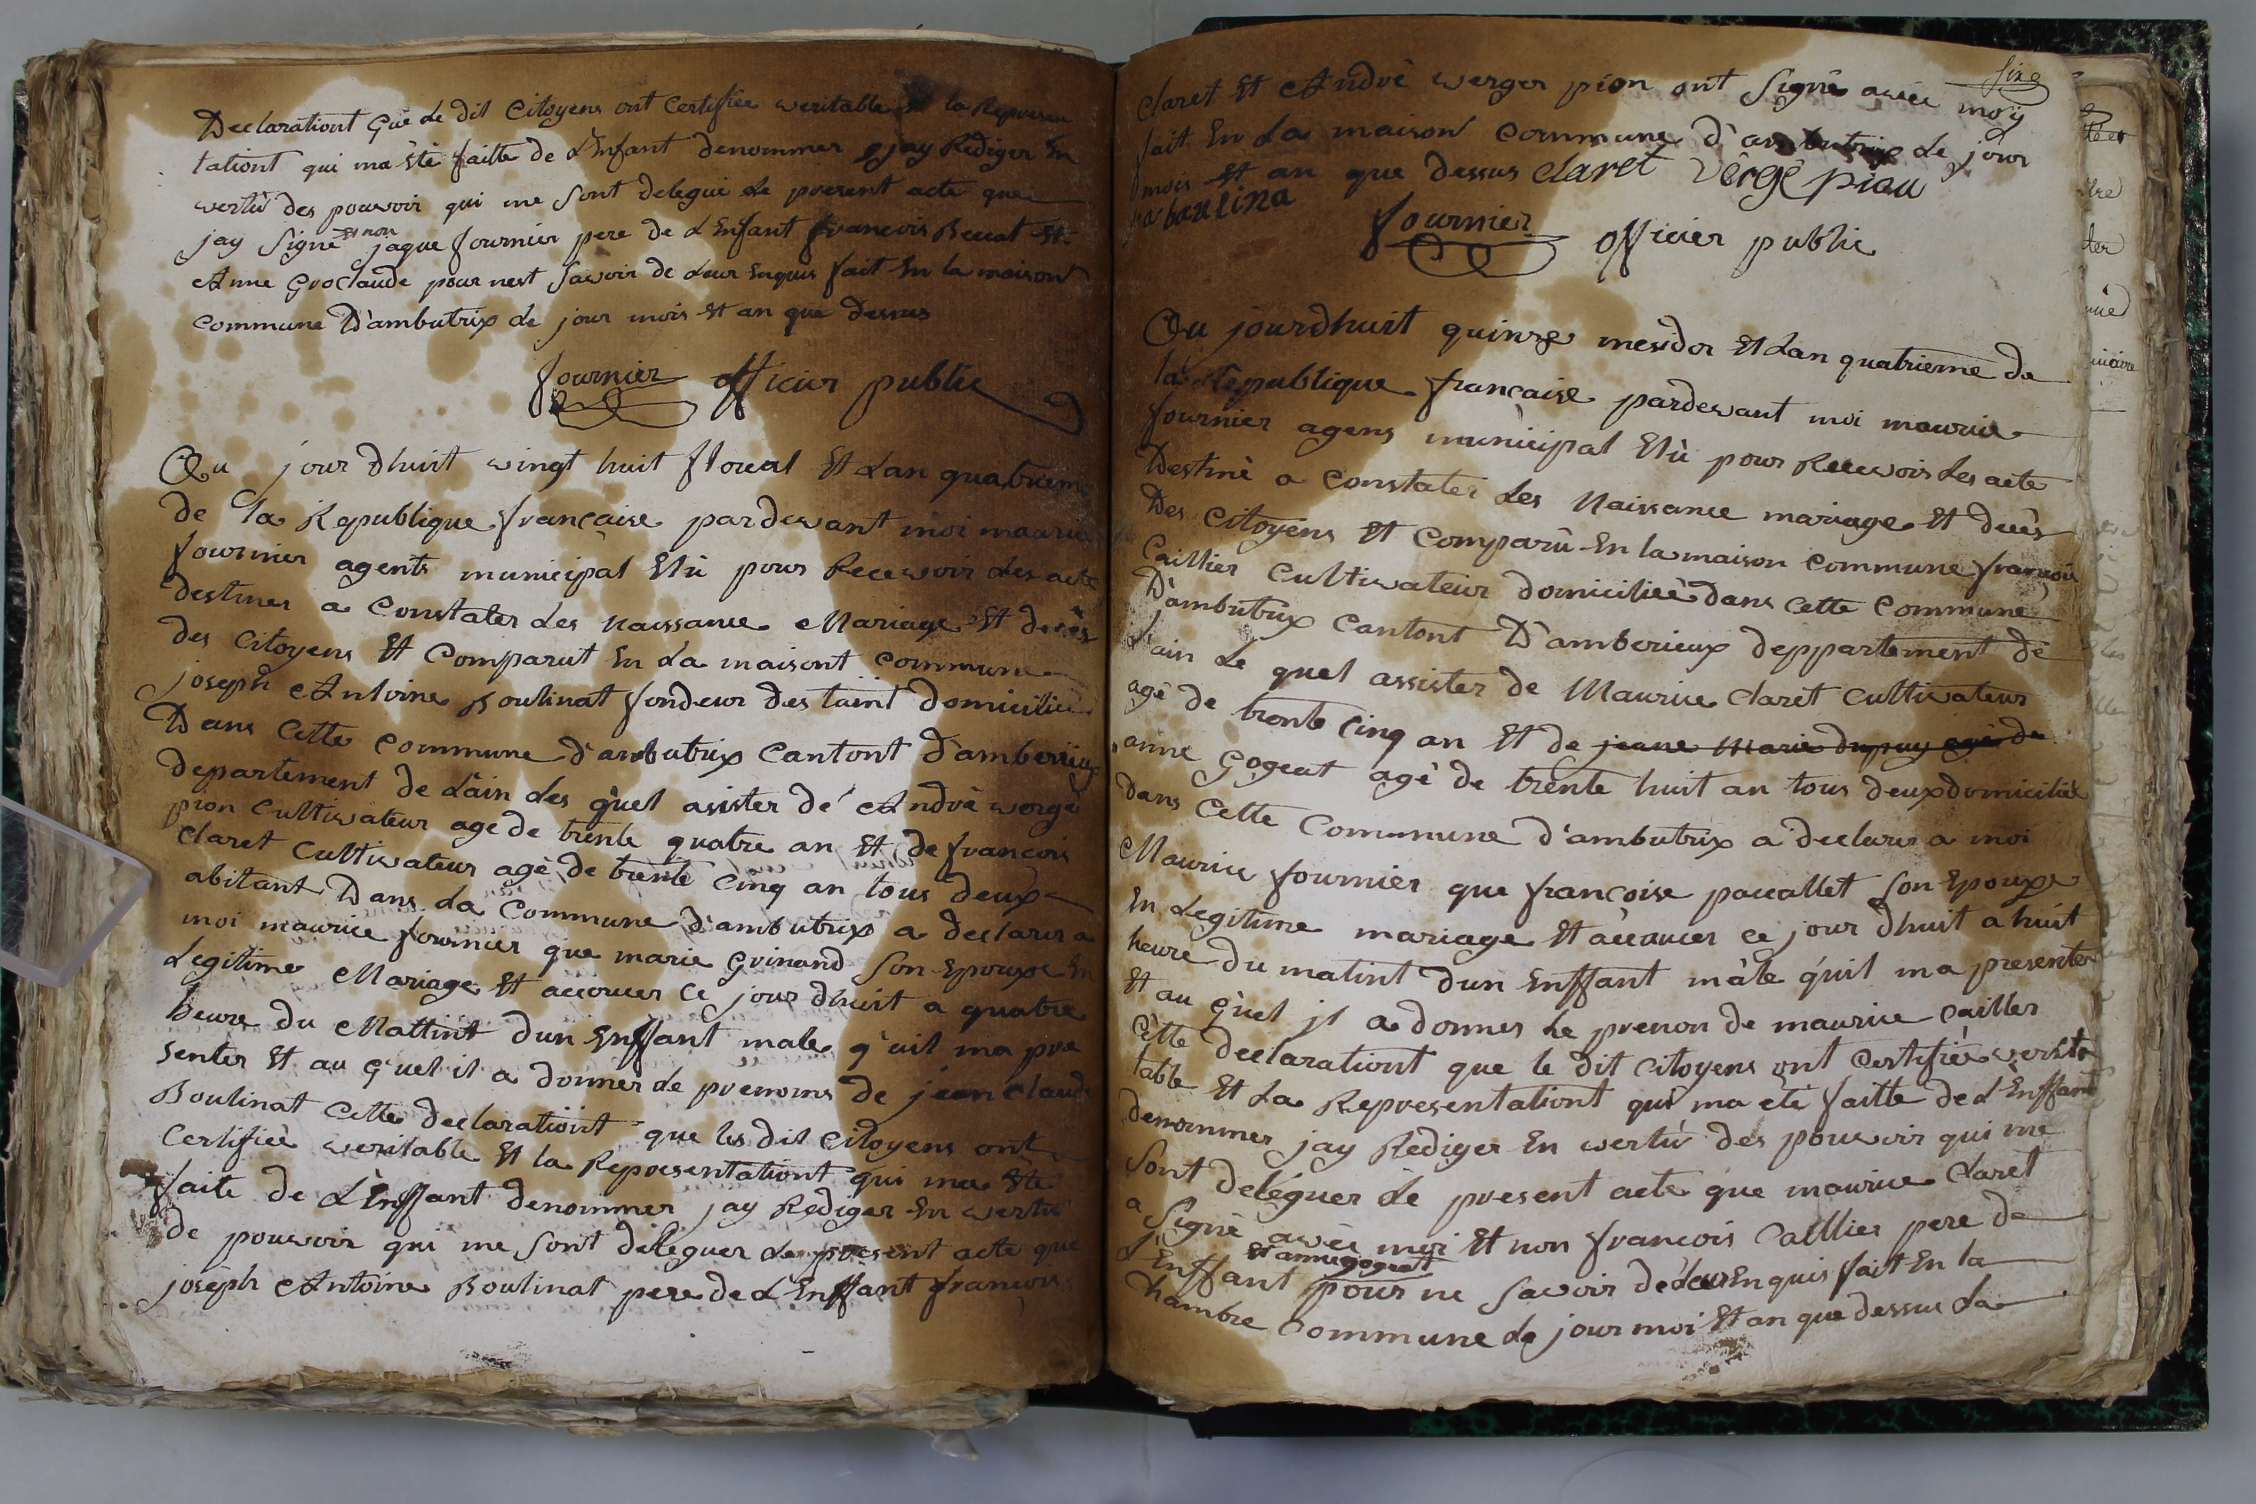 Declarationt que Le dit Citoyens ont Certifiée weritable Et la Represen
tationt qui ma été faitte de L'Enfant denommer jay Rediger En
wertû des pouvoir qui me sont delegué Le present acte que
jay Signé Et non jaque fournier pere de L'Enfant francois Beccat Et
Anne Groclaude pour nest Savoir de Leur Enquis fait En la maison
Commune D'ambutrix Le jour mois Et an que dessus
fournier officier public
Au jourdhuit wingt huit floreal Et Lan quatrieme
de la Republique française pardewant moi maurice
fournier agents municipal Elû pour Recewoir Les acte
destiner a Constater Les naissance Mariage Et decès
des Citoyens Et Comparut En La maisont commune
joseph Antoine Boulinat fondeur destaint domicilié
Dans Cette Commune d'ambutrix Cantont D'amberieux
departement de L'ain Les quel asister de Andvé werge
pion Cultiwateur age de trente quatre an Et de francois
Claret Cultiwateur agé de trente Cinq an tous deux
abitant Dans La Commune d'ambutrix a declarer a
moi maurice fournier que marie Guinand Son Epouxe En
Legitime Mariage Et accoucer Ce jour dhuit a quatre
heure du Mattint dun Enffant male q'uil ma pre
senter Et au q'uel il a donner Le prenoms de jean Claude
Boulinat Cette declarationt que les dit Citoyens ont
Certifieé weritable Et la Representationt qui ma Eté
faite de L'Enffant denommer jay Rediger En wertu
de pouwoir qui me sont deleguer Le present acte que
joseph Antoine Boulinat pere de L'Enffant francois
six
Claret Et Andvé werger pion ont Signé avec moy
fait En La maison Commune d'ambutrix Le jour
mois Et an que dessus Claret Vergé piou
a baulina
fournier officier public
Au jourdhuit quinze mesidor Et Lan quatrieme de
la Republique francaise pardewant moi maurice
fournier agens municipal Elû pour Recewoir Les acte
Destiné a Constater Les Naissance mariage Et decès
Des Citoyens Et Comparû En la maison Commune francois
Caillier Cultiwateur domicilieé dans cette Commune
D'ambutrix Cantont D'amberieux deppartement de
L'ain Le quel assister de Maurice Claret Cultiwateur
agé de trente Cinq an Et de jeane Marie dupuy agé de
anne Gogeat agé de trente huit an tous deux domicilié
dans Cette Commune d'ambutrix a declarer a moi
Maurice fournier que françoise paccallet Son Epouxe
En Legitime mariage Et accoucer ce jour dhuit a huit
heure du matint dun Enffant mâle q'uil ma presenter
Et au q'uel il a donner Le prenon de maurice Cailler
Cette declarationt que le dit Citoyens ont Certifieé werita
table Et La Representationt qui ma eté faitte de L'Enffant
denommer jay Rediger En wertû des pouwoir qui me
Sont deléguer Le present acte que maurice Claret
a Signé avec moi Et non francois Caillier pere de
L'Enffant Et anne gogeat pour ne Savoir de Leur Enquis fait En la
Chambre Commune Le jour moi Et an que dessus La